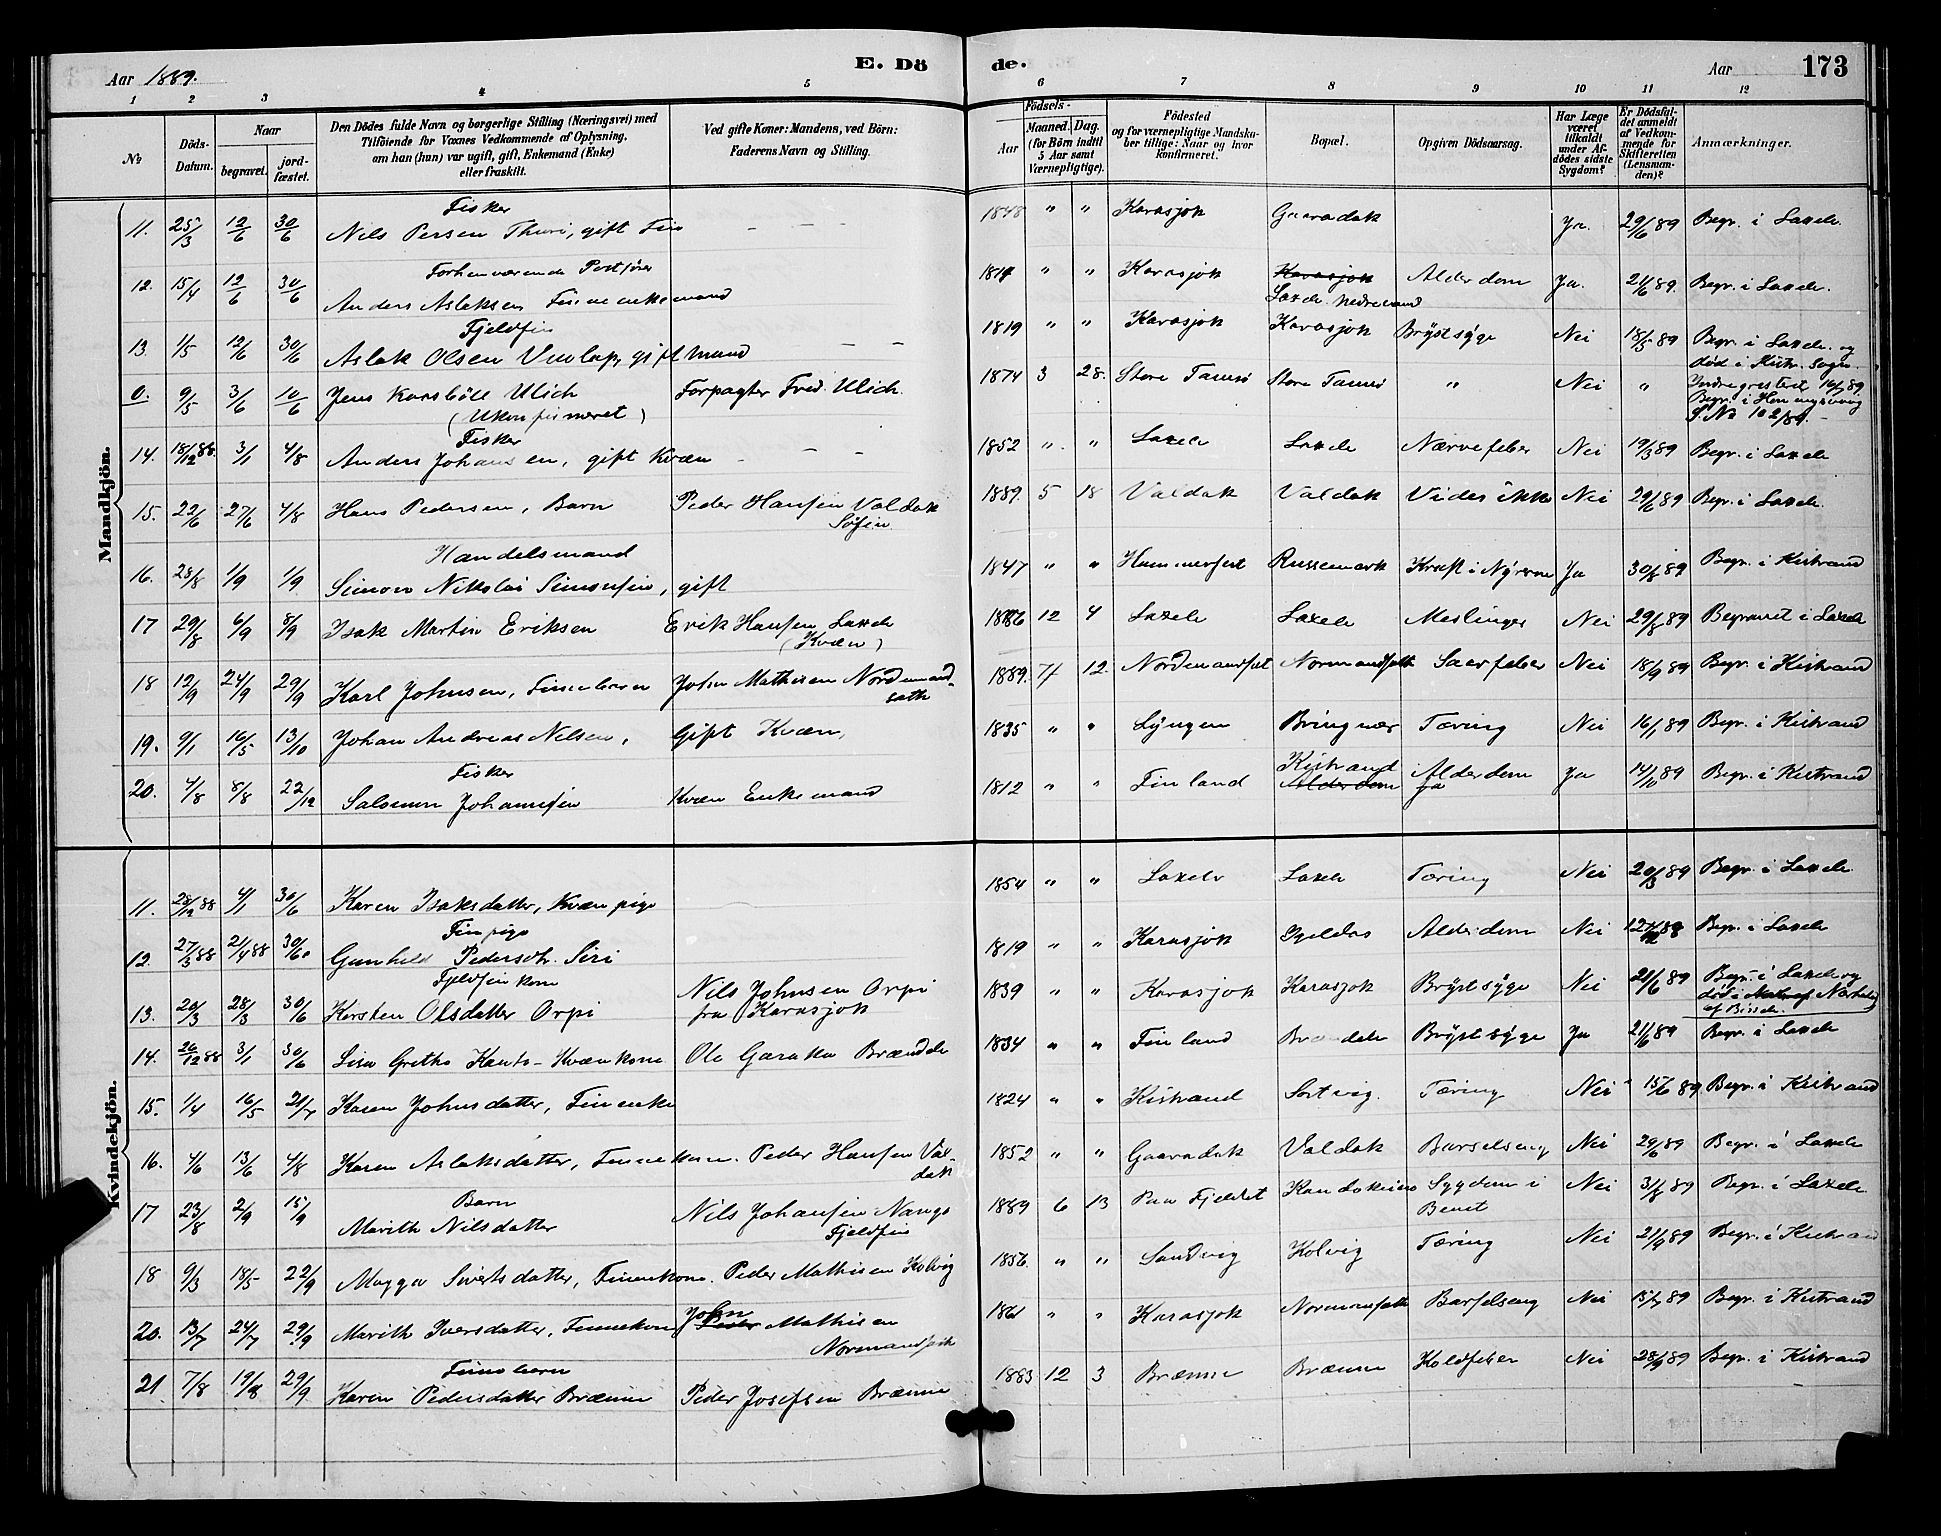 Aar 1889.
E. Dö de.
Aar 173
1 2 3 4 5 6 7 8 9 10 11 12
№
Döds-Datum.
Naar
begravet.
jord-fæstet.
Den Dödes fulde Navn og borgerlige Stilling (Næringsvei) med
Tilföiende for Voxnes Vedkommende af Oplysning,
om han (hun) var ugift, gift, Enkemand (Enke)
eller fraskilt.
Ved gifte Koner: Mandens, ved Börn:
Faderens Navn og Stilling.
Födsels-
Aar
Maaned. Dag.
(for Börn indtil
5 Aar samt
Værnepligtige).
Födested
og for værnepligtige Mandska-
ber tillige: Naar og hvor
konfirmeret.
Bopæl.
Opgiven Dödsaarsag.
Har Læge
været
tilkaldt
under Af-
dödes sidste
Sygdom?
Er Dödsfal-
det anmeldt
af Vedkom-
mende for
Skifteretten
(Lensman-
den)?
Anmærkninger.
Mandkjön.
Fisker
11. 25/3 12/6 30/6 Nils Persen Thuri, gift Fin - - - 1848 " " Karasjok Gaaradak Ja. 29/6 89 Begr. i Laxelv.
Forhenværende Postförer
12. 15/4 12/6 30/6 Anders Aslaksen Finneenkemand 1817 " " Karasjok Karasjok Alderdom Ja. 21/6 89. Begr. i Laxelv.
Laxelv. Nedrevand
Fjeldfin
13. 1/5 12/6 30/6 Aslak Olsen Vuolap, gift Mand - - 1819 " " Karasjok Karasjok Brÿstsÿge Nei 18/5 89 Begr. i Laxelv. og
död i Kistr. Sogn.
0. 9/5 3/6 10/6 Jens Karsböll Ulich Forpagter Fred. Ulich. 1874 3 28. Store Tamsö Store Tamsö " Nei " 16/7 89.
(Ukonfirmeret) Begr. i Honningsvaag
J. No 102/89.
Fisker
14. 18/12 88. 3/1 4/8 Anders Johansen, gift Kvæn - - - 1852 " " Laxelv Laxelv Nærvefeber Nei 19/3 89 Begr. i Laxelv
15. 22/6 27/6 4/8 Hans Pedersen, Barn Peder Hansen Valdak 1889. 5 18 Valdak Valdak Vides ikke Nei 29/6 89 Begr. i Laxelv.
Söfin.
Handelsmand
16. 28/8 1/9 1/9 Simon Nikolai Simonsen, gift 1847 " " Hammerfest Russemark Kræft i Nÿrerne Ja 30/8 89 Begr. i Kistrand
17 29/8 6/9 8/9 Isak Martin Eriksen Erik Hansen Laxelv 1886 12 4 Laxelv Laxelv Meslinger Nei 29/8 89 Begravet i Laxelv
(Kvæn)
18 12/9 24/9 29/9 Karl Johnsen, Finnebarn John Mathisen Nordmand- 1889. 7 12. Nordmandset Normandset Nei 18/9 89 Begr. i Kistrand
sæth
19. 9/1 16/5 13/10 Johan Andreas Nilsen, Gift Kvæn, 1835 " " Lÿngen Bringnær Tæring Nei 16/1 89 Begr. i Kistrand
Fisker
20. 4/8 8/8 22/12 Salomon Johannesen Kvæn Enkemand 1812 " " Finland Kistrand Alderdom Ja 14/10 89 Begr. i Kistrand
Alderdom Ja
Kvindekjön.
11. 28/12 88 4/1 30/6 Karen Isaksdatter, Kvænpige 1854 " " Laxelv Laxelv Tæring Nei 20/3 89 Begr. i Laxelv.
Finpige
12. 27/3 88 21/4 88 30/6 Gunhild Pedersdtr. Siri 1819 " " Karasjok Alderdom Nei Begr. i Laxelv
Fjeldfinkone
13. 20/3 28/3 30/6 Kirsten Olsdatter Orpi Nils Johnsen Orpi 1839 " " Karasjok Karasjok Brÿstsÿge Nei 21/6 89 Begr. i Laxelv og
fra Karasjok
14. 26/12 88 3/1 30/6 Lisa Gretha Kæntä - Kvænkone Ole Garaka Brændelv 1834 " " Finland Brændelv Brÿstsÿge Ja 21/6 89 Begr. i Laxelv
15. 1/4 16/5 21/7 Karen Johnsdatter, Finenke 1824 " " Kistrand Sortvig. Tæring Nei 15/6 89. Begr. i Kistrand
16. 4/6 13/6 4/8 Karen Aslaksdatter, Finnekone. Peder Hansen Val- 1852 " " Gaaradak Valdak Barselseng Nei 29/6 89 Begr. i Laxelv
dak
Barn
17 23/8 2/9 15/9 Marith Nilsdatter Nils Johansen Nango 1889 6 13 Paa Fjeldet Kautokeino Sygdom i Nei 31/8 89 Begr. i Laxelv.
Fjeldfin Benet
18 9/3 18/5 22/9 Magga Sivertsdatter, Finnekone. Peder Mathisen Kolvig 1856. " " Sandvig Kolvig Tæring Nei 21/9 89 Begr. i Kistrand
20. 13/7 24/7 29/9 Marith Iversdatter, Finnekone John Peder Mathisen 1861 " " Karasjok Normansæth Barselseng Nei 15/7 89 Begr. i Kistrand
Normandsæth
Finnebarn
21 7/8 19/8 29/9 Karen Pedersdatter Brænne Peder Josefsen Brænne 1883 12 3 Brænne Brænne Koldfeber Nei 28/9 89 Begr. i Kistrand